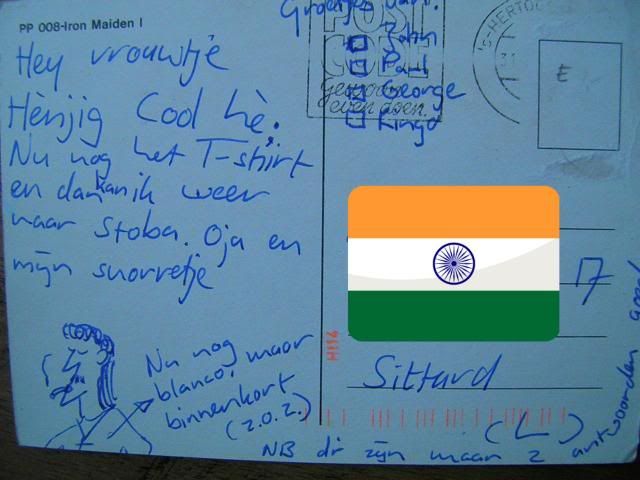 PP 008-Iron Maiden I
Hey vrouwtje
Hènjig Cool hè.
Nu nog het T-shirt
en dan kan ik weer
naar Stoba. Oja en
mijn snorretje
Nu nog maar
blanco,
binnenkort
(z.o.z.)
POST
CODE
Gewoon
even doen.
John
Paul
George
Ringo
's-HERTO
31
E
17
Sittard
(L)
H114
NB dr zijn maar 2 antwoorden goed